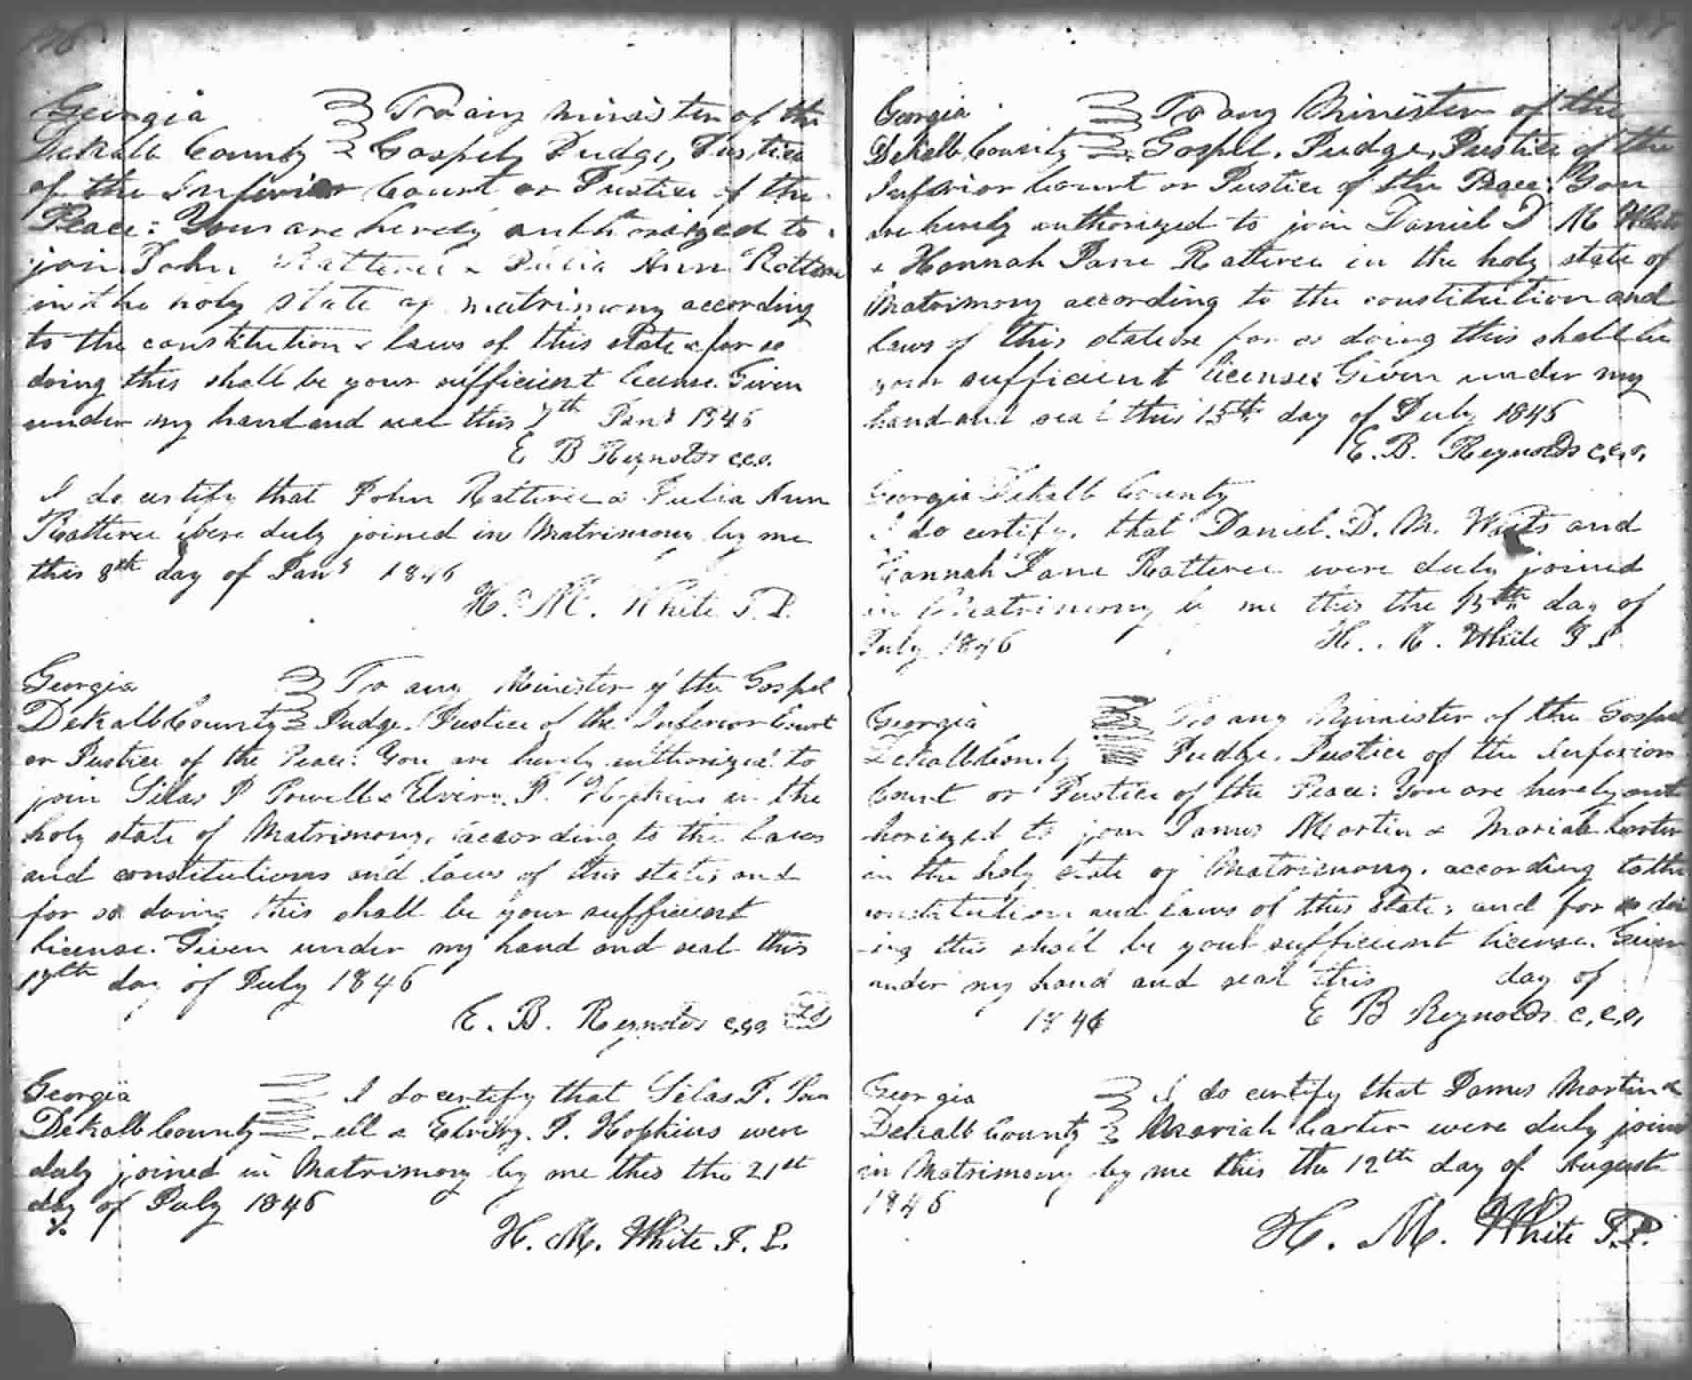 Georgia To any minister of the
Dekalb County Gospel, Judge, Justice
of the Inferior Court or Justice of the
Peace: You are hereby authorized to
join John Ratteree & Julia Ann Ratteree
in the holy state of matrimony according
to the constitution & laws of this state & for so
doing this shall be your sufficient license. Given
under my hand and seal this 7th Jany 1846
E B Reynolds c.c.o.
I do certify that John Ratteree & Julia Ann
Ratteree were duly joined in Matrimony by me
this 8th day of Jany 1846
H. M. White J. P.
Georgia To any Minister of the Gospel
Dekalb County Judge, Justice of the Inferior Court
or Justice of the Peace: You are hereby authorized to
join Silas P Powell & Elvira P. Hopkins in the
holy state of Matrimony, according to the laws
and constitutions and laws of this state, and
for so doing this shall be your sufficient
license. Given under my hand and seal this
17th day of July 1846
E. B. Reynolds c.c.o.
Georgia I do certify that Silas T. Pow
Dekalb County -ell & Elviry. P. Hopkins were
duly joined in Matrimony by me this the 21st
day of July 1846
H. M. White J. P.
Georgia To any Minister of the
Dekalb County Gospel, Judge, Justice of the
Inferior Court or Justice of the Peace: You
are hereby authorized to join Daniel D M
& Hannah Jane Ratteree in the holy state of
Matrimony according to the constitution and
laws of this state & for so doing this shall be
your sufficient license Given under my
hand and seal this 15th day of July 1846
E. B. Reynolds c.c.o.
Georgia Dekalb County
I do certify, that Daniel. D. M. and
Hannah Jane Ratteree were duly joined
in Matrimony by me this the 15th day of
July 1846 H. M. White J P.
Georgia To any Minister of the Gospel
Dekalb County Judge, Justice of the Inferior
Court or Justice of the Peace: You are hereby aut
horized to join James Martin & Mariah Carter
in the holy state of Matrimony, according to the
constitution and laws of this State, and for so do
-ing this shall be your sufficient license. Given
under my hand and seal this day of
1846 E B Reynolds c.c.o.
Georgia I do certify that James Martin &
Dekalb County Mariah Carter were duly joined
in Matrimony by me this the 12th day of August
1846
H. M. White J. P.